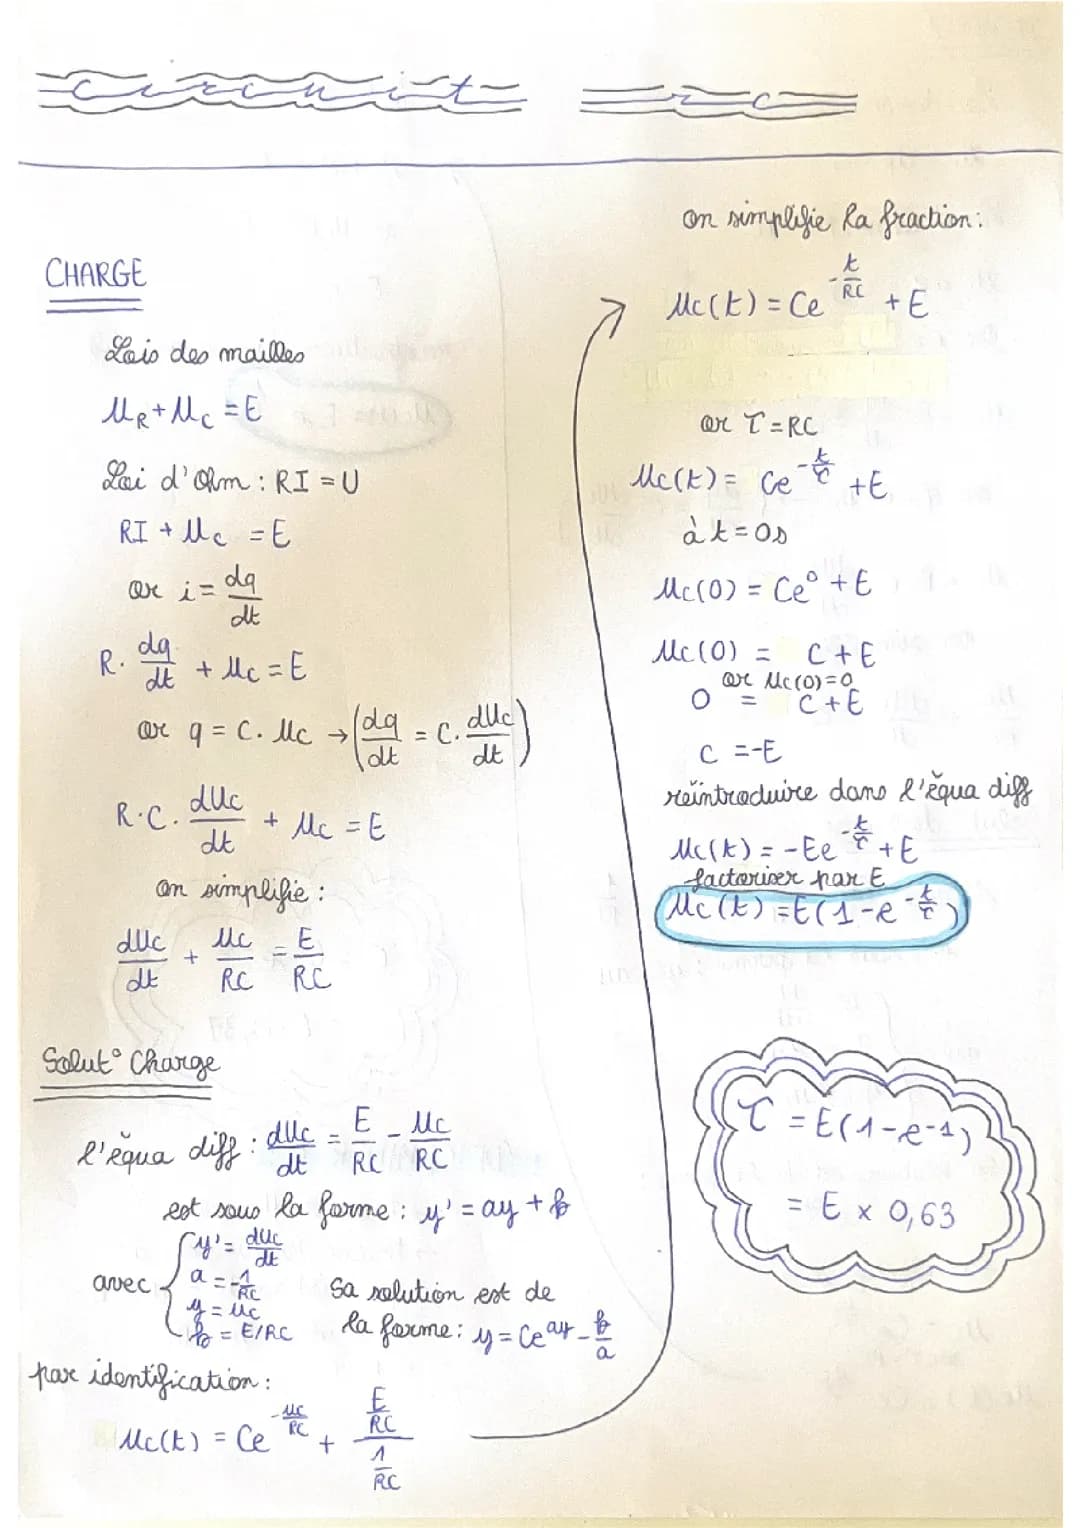 circuit rc
CHARGE
Lois des mailles
U_R + U_C = E
Loi d'Ohm : RI = U
RI + U_C = E
or i = dq/dt
R. dq/dt + U_C = E
or q = C. U_C → (dq/dt = C. dU_C/dt)
R.C. dU_C/dt + U_C = E
on simplifie :
dU_C/dt + U_C/RC = E/RC
Solut° Charge
l'équa diff : dU_C/dt = E/RC - U_C/RC
est sous la forme : y' = ay + b
avec { y' = dU_C/dt
a = -1/RC
y = U_C
b = E/RC
Sa solution est de
la forme : y = Ce^ay - b/a
par identification :
U_C(t) = Ce^(-U_C/RC) + (E/RC)/(1/RC)
on simplifie la fraction :
U_C(t) = Ce^(-t/RC) + E
or τ = RC
U_C(t) = Ce^(-t/τ) + E
à t = 0s
U_C(0) = Ce⁰ + E
U_C(0) = C + E
or U_C(0) = 0
0 = C + E
C = -E
réintroduire dans l'équa diff
U_C(t) = -Ee^(-t/τ) + E
factoriser par E
U_C(t) = E(1-e^(-t/τ))
τ = E(1-e-1)
= E x 0,63